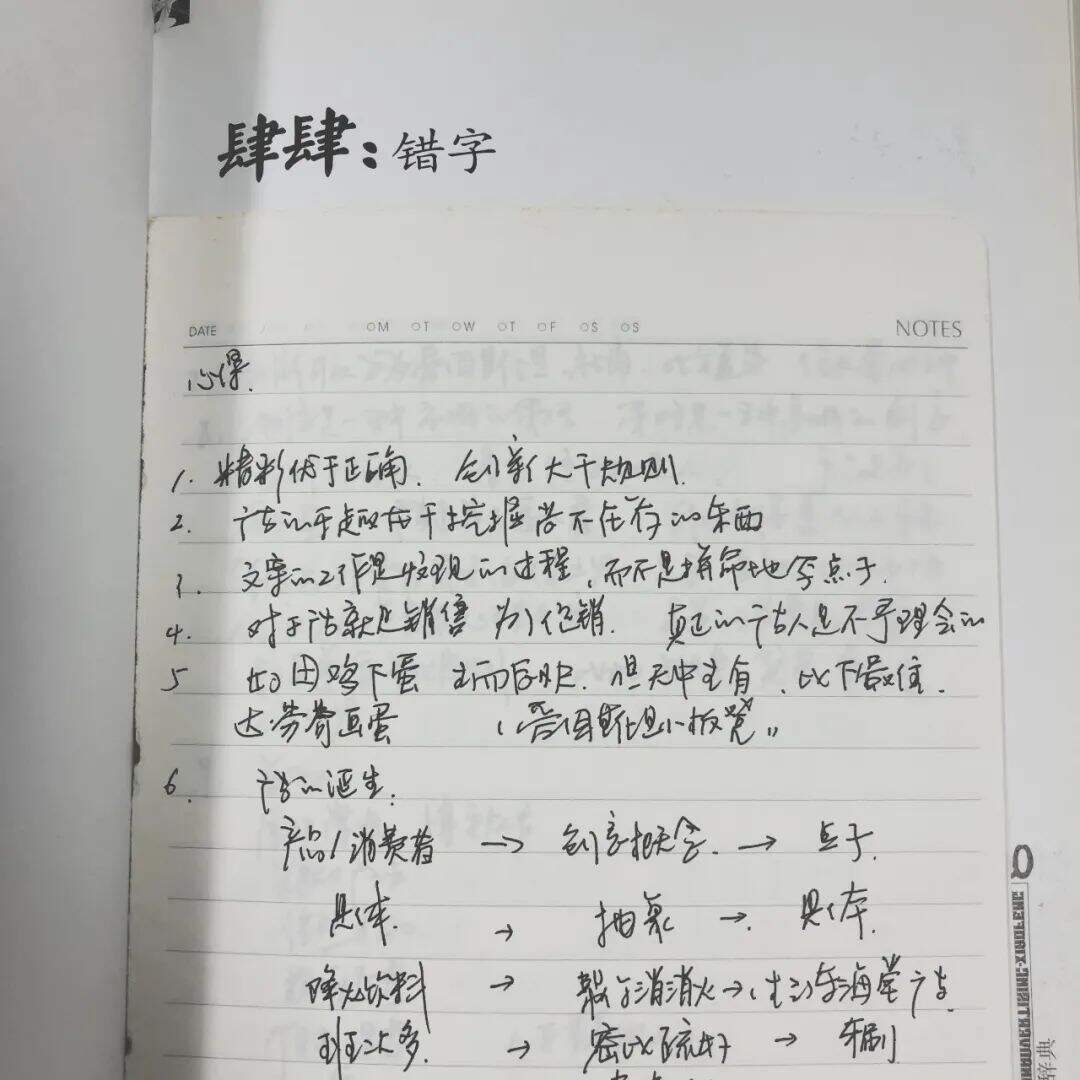 肆肆：错字
DATE OM OT OW OT OF OS OS NOTES
心得.
1. 精彩优于正确. 创新大于规则.
2. 广告的乐趣在于挖掘尚不存在的东西
3. 文案的工作是发现的过程,而不是拼命地写点子.
4. 对于广告就是销售 为了促销. 真正的广告人是不予理会的
5 如母鸡下蛋 生而后快. 但无中生有,以下最佳.
达芬奇画蛋 《爱因斯坦小板凳》
6. 广告的诞生.
产品/消费者 → 创意概念. → 点子.
具体. → 抽象 → 具体.
降火饮料 → 消消火 → 广告.
班次多. → 密比疏好 → 牙刷
Q
辞典